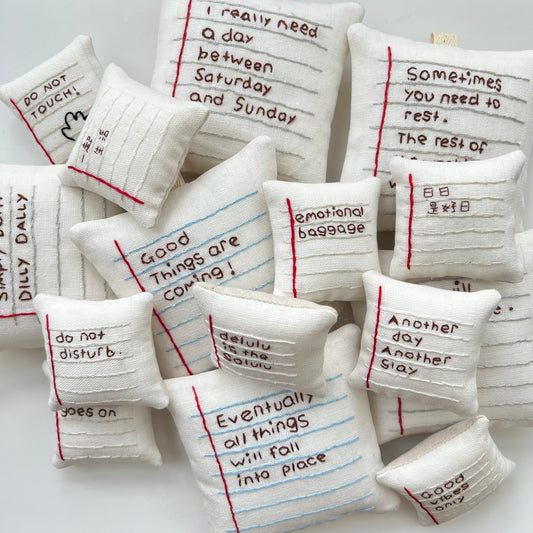 I really need
a day
between
Saturday
and Sunday
DO NOT
TOUCH!
Sometimes
you need to
rest.
The rest of
日日
是好日
emotional
baggage
DILLY DALLY
Good
Things are
coming!
do not
disturb.
delulu
is the
solulu
Another
day
Another
slay
goes on
Eventually
all things
will fall
into place
Good
vibes
only